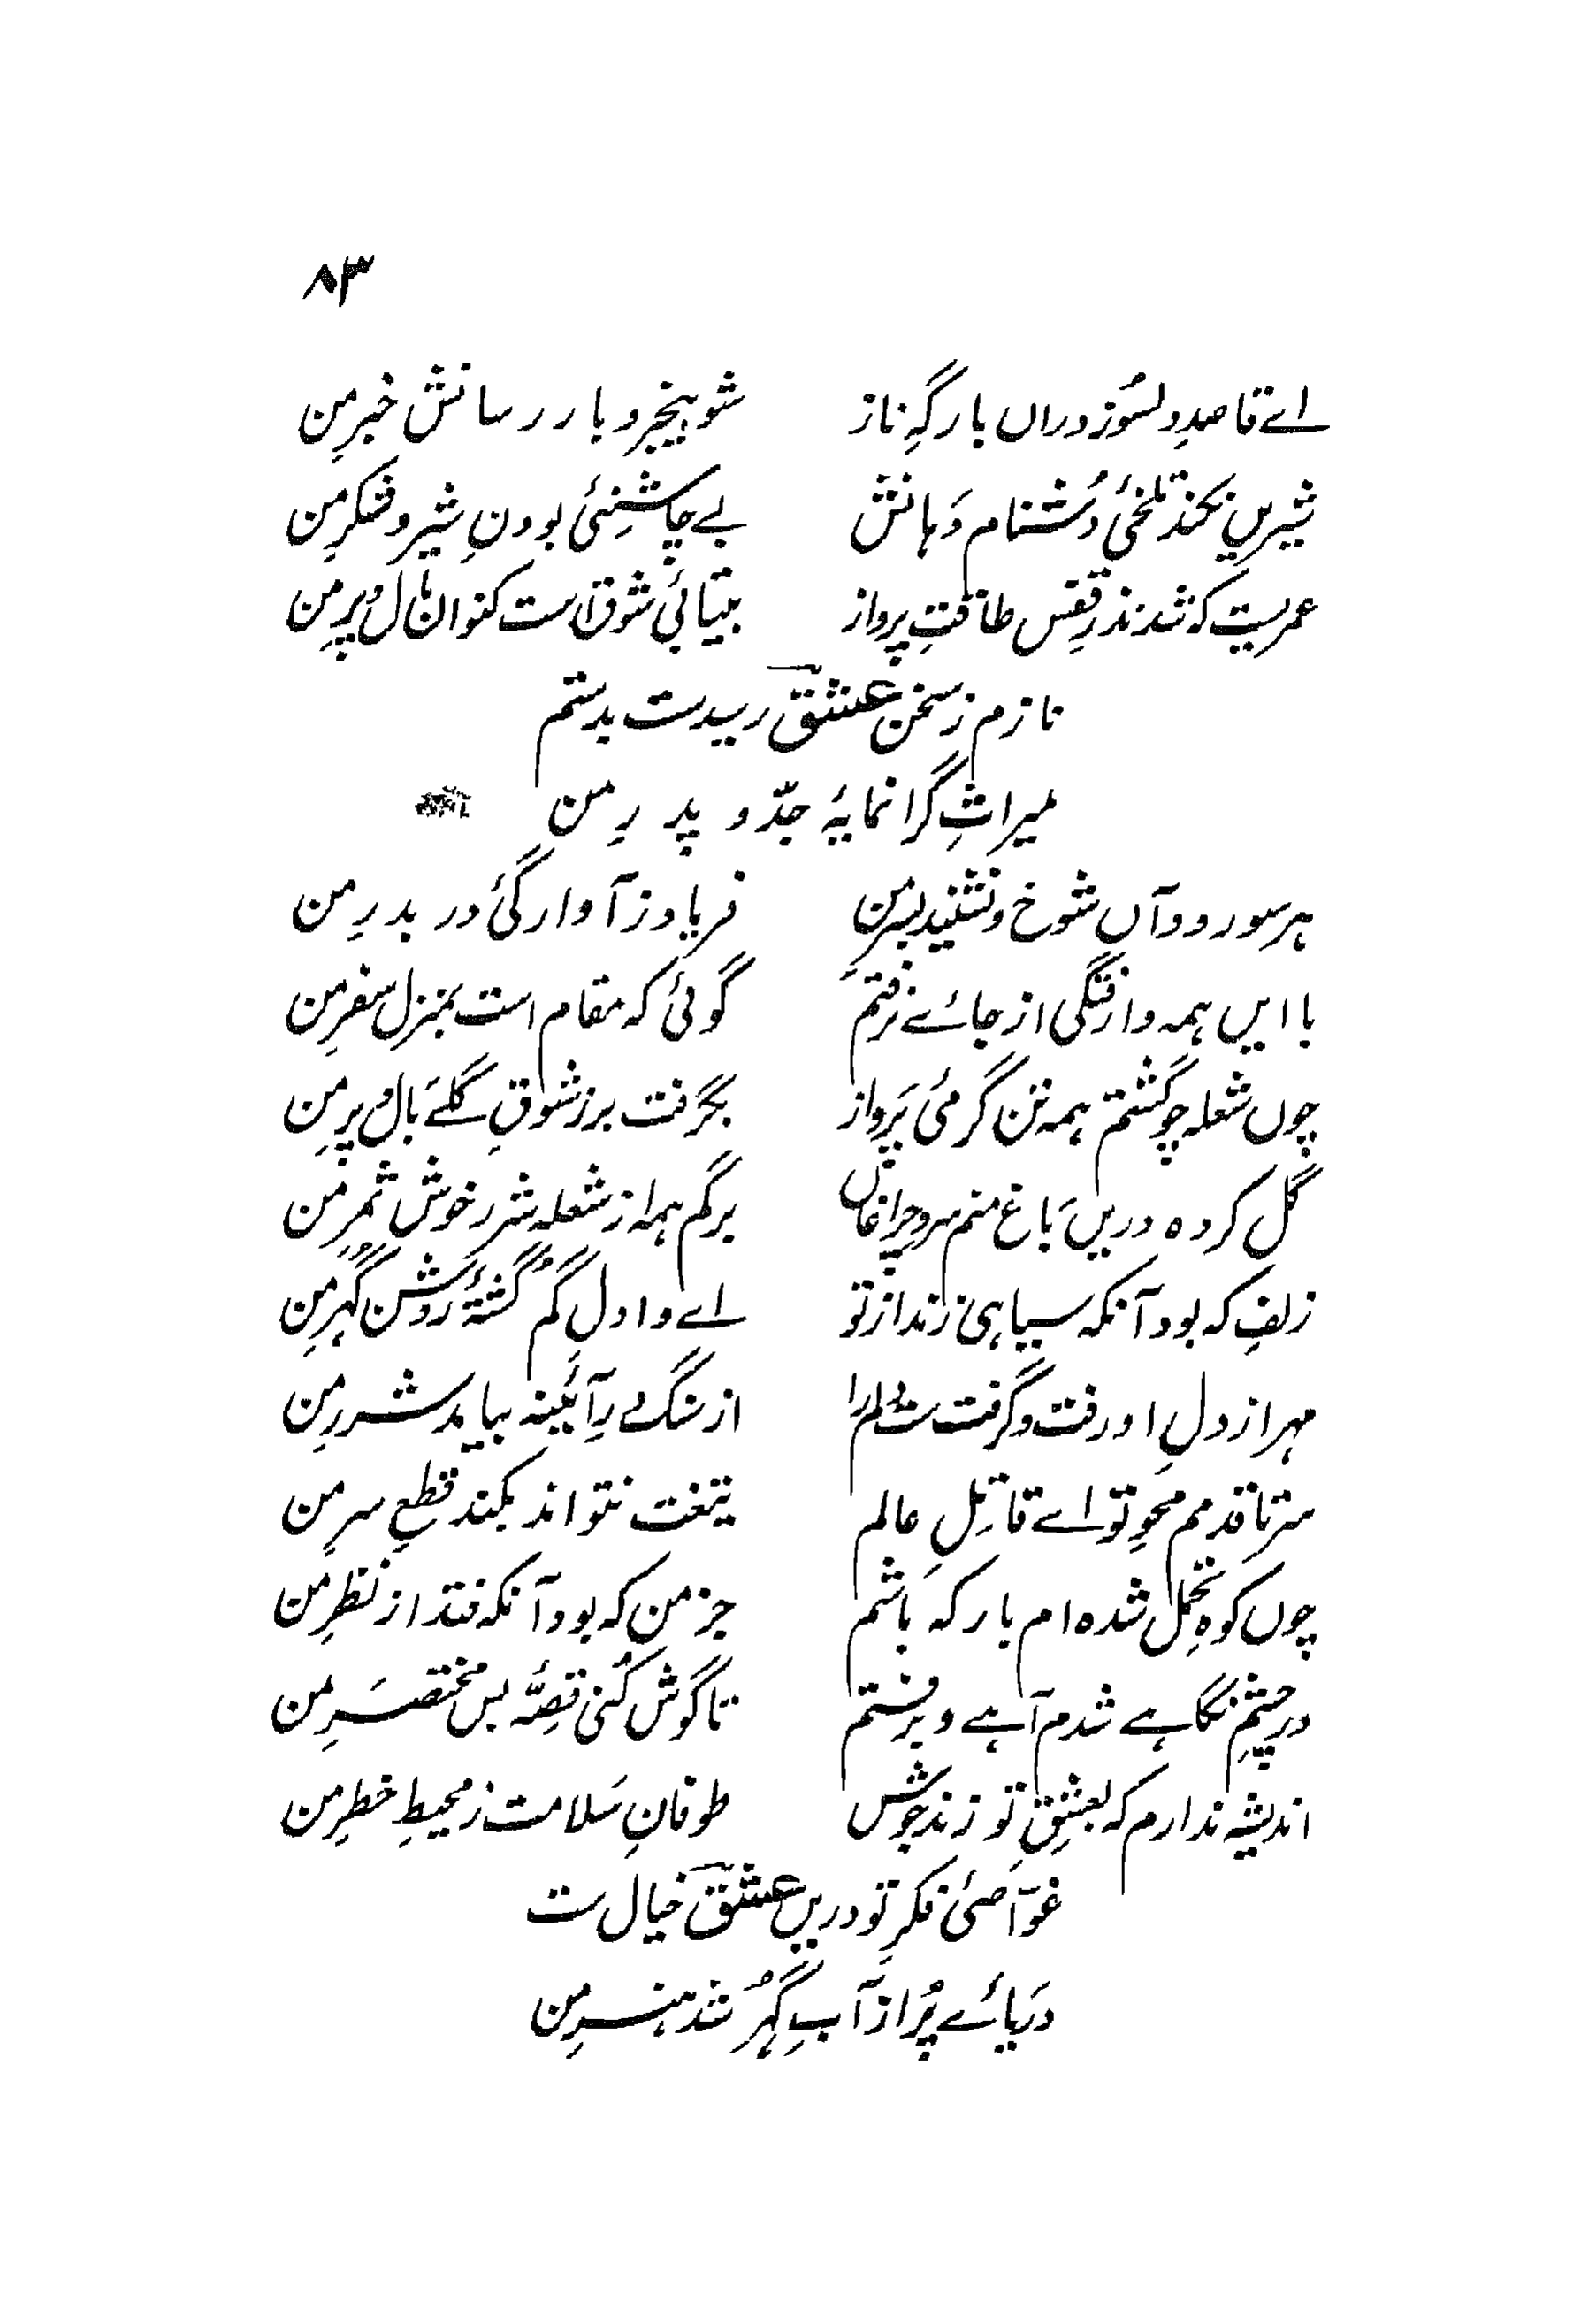 ۸۳
اے قاصدِ دلسُوز دراں بارگہِ ناز شو بیخبر و باز رسانش خبرِ من
شیریں نکند تلخیٔ دُشنام دَہانش بے چاشنیٔ بودنِ شیر و شکرِ من
عمریست کہ شد نذرِ قفس طاقتِ پرواز بیتابیٔ شوق است کنوان بال و پرِ من
نازم ز سخن عشقؔ رسیدست بدستم
میراثِ گرانمایۂ جدّ و پدرِ من
ہر سو رود آں شوخ و نشنید بسرِ من فریاد ز آوارگیٔ در بدرِ من
با ایں ہمہ وارفتگی از جائے نرفتم گوئی کہ مقام است بمنزل سفرِ من
چوں شعلہ چو گشتم ہمہ تن گرمیٔ پَرواز بگرفت برز شوقِ گلے بال و پرِ من
گل کردہ دریں باغ منم سروِ چراغاں برگم ہمہ از شعلہ شرر خوش ثمرِ من
زلفِ کہ بود آنکہ سیاہی زند از تو اے وا دلِ گم گشتۂ روشن گُہرِ من
مہر از دلِ او رفت و گرفت ست دلم را از سنگ دِرِ آئینہ بیاید شررِ من
سر تا قدمم محوِ تو اے قاتلِ عالم تیغت نتواند بکند قطعِ سرِ من
چوں کوہِ تحمل شدہ ام بار کہ باشم جز من کہ بود آنکہ فتد از نظرِ من
در چشمِ نگاہے شدم آہے و برفتم تا گوش کُنی قصّۂ بس مختصَرِ من
اندیشہ ندارم کہ بعشقِ تو زند جوش طوفانِ سَلامت ز محیطِ خطرِ من
غوّاصیٔ فکرِ تو دریں عشقؔ خیال ست
دریائے پُر از آبِ گُہر شد ہنرِ من